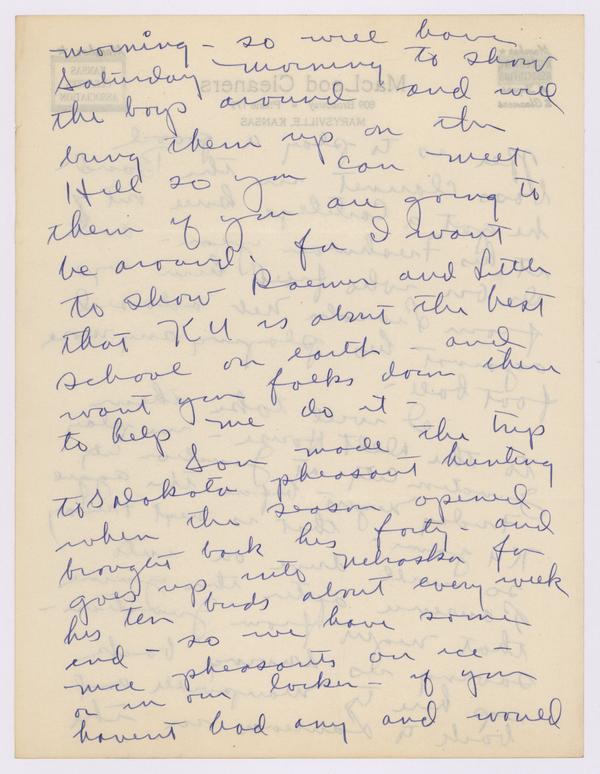 morning - so will have
Saturday morning to show
the boys around and will
bring them up on the
Hill so you can meet
them if you are going to
be around. for I want
to show Raemer and Little
that KU is about the best
school on earth - and
want you folks down there
to help me do it -
Son made the trip
to S Dakota pheasant hunting
when the season opened
brought back his forty - and
goes up into Nebraska for
his ten birds about every week
end - so we have some
nice pheasants on ice -
or in our locker - if you
havent had any and would
MacLeod Cleaners
MARYSVILLE, KANSAS